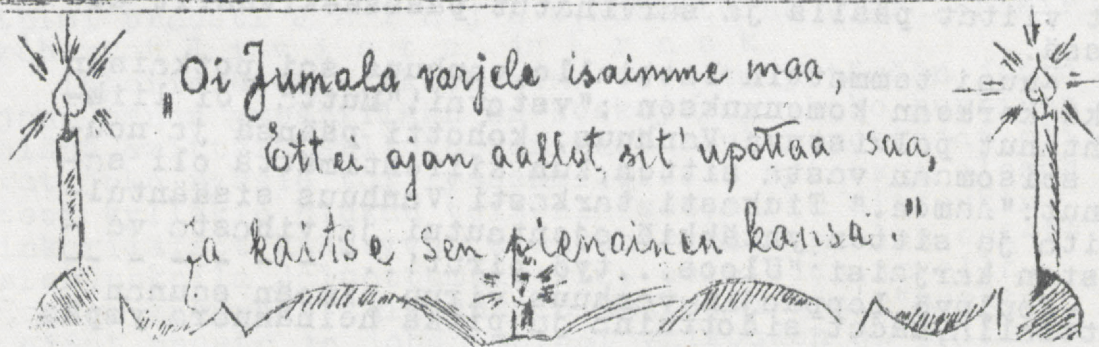 „Oi Jumala varjele isäimme maa,
Ettei ajan aallot sit' upottaa saa,
ja kaitse sen pienoinen kansa."